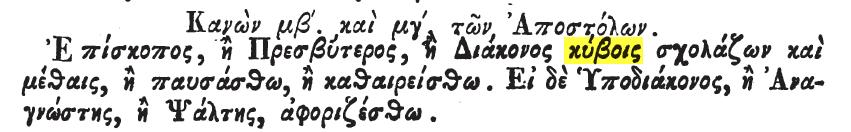 Κανὼν μβ´. καὶ μγ´. τῶν Ἀποστόλων.
Ἐπίσκοπος, ἢ Πρεσβύτερος, ἢ Διάκονος κύβοις σχολάζων καὶ
μέθαις, ἢ παυσάσθω, ἢ καθαιρείσθω. Εἰ δὲ Ὑποδιάκονος, ἢ Ἀνα-
γνώστης, ἢ Ψάλτης, ἀφοριζέσθω.